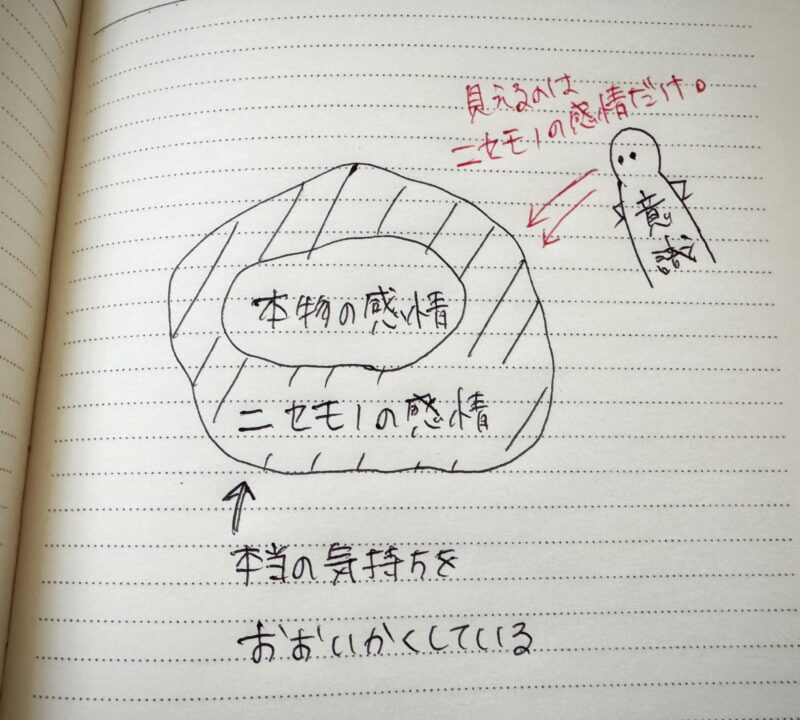 見えるのは
ニセモノの感情だけ。
意識
本物の感情
ニセモノの感情
本当の気持ちを
おおいかくしている